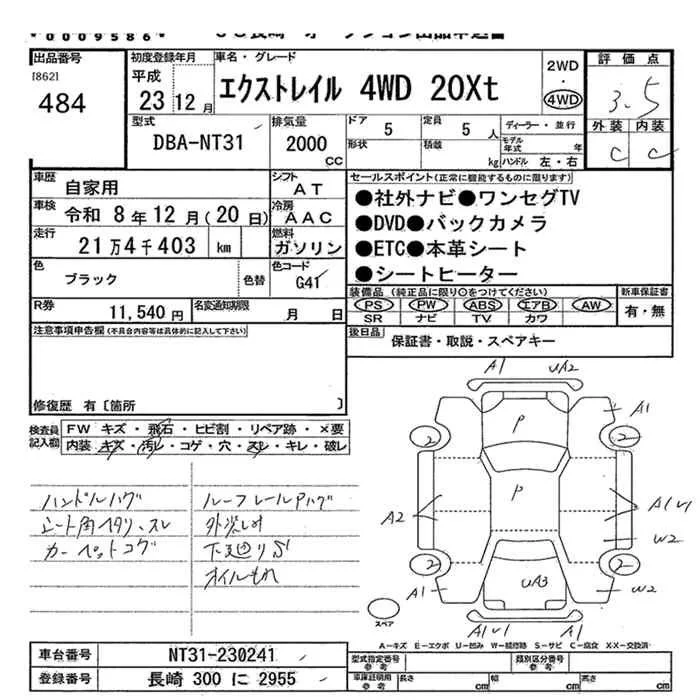 00009586
出品番号 初度登録年月 車名・グレード 2WD ・ 4WD 評価点
[862] 平成
484 23年12月 エクストレイル 4WD 20Xt 3.5
型式 DBA-NT31 排気量 2000 CC ドア 5 定員 5 人 ディーラー・並行 外装 内装
形状 積載 kg モデル年式 年 C C
ハンドル 左・右
車歴 自家用 シフト AT セールスポイント(正常に機能するものに限ります)
車検 令和 8年12月(20日) 冷房 AAC ●社外ナビ●ワンセグTV
走行 21万4千403 km 燃料 ガソリン ●DVD●バックカメラ
●ETC●本革シート
色 ブラック 色替 色コード G41 ●シートヒーター
装備品(純正品に限り○をつけてください) 新車保証書
R券 11,540円 名変通知期限 月 日 PS PW ABS エアB AW 有・無
SR ナビ TV カワ
注意事項申告欄(不具合内容等は具体的に記入して下さい) 後日品 保証書・取説・スペアキー
修復歴 有〔箇所 〕
検査員記入欄 FW キズ・飛石・ヒビ割・リペア跡・×要
内装 キズ・汚レ・コゲ・穴・スレ・キレ・破レ
ハンドルハゲ ルーフレールPハゲ
シート角ヘタリ、スレ 外装しめ
カーペットコゲ 下廻りS
オイルもれ
A1 UA2
A1
2 P 2
A2 P A1U1
W2
2 2
A1 UA3 W2
A1U1 A1
スペア
A-キズ E-エクボ U-凹み W-補修跡 S-サビ C-腐食 X・XX-交換済
車台番号 NT31-230241 型式指定番号 参考 類別区分番号 参考
登録番号 長崎 300 に 2955 車庫証明用 参考 長さ cm 幅 cm 高さ cm